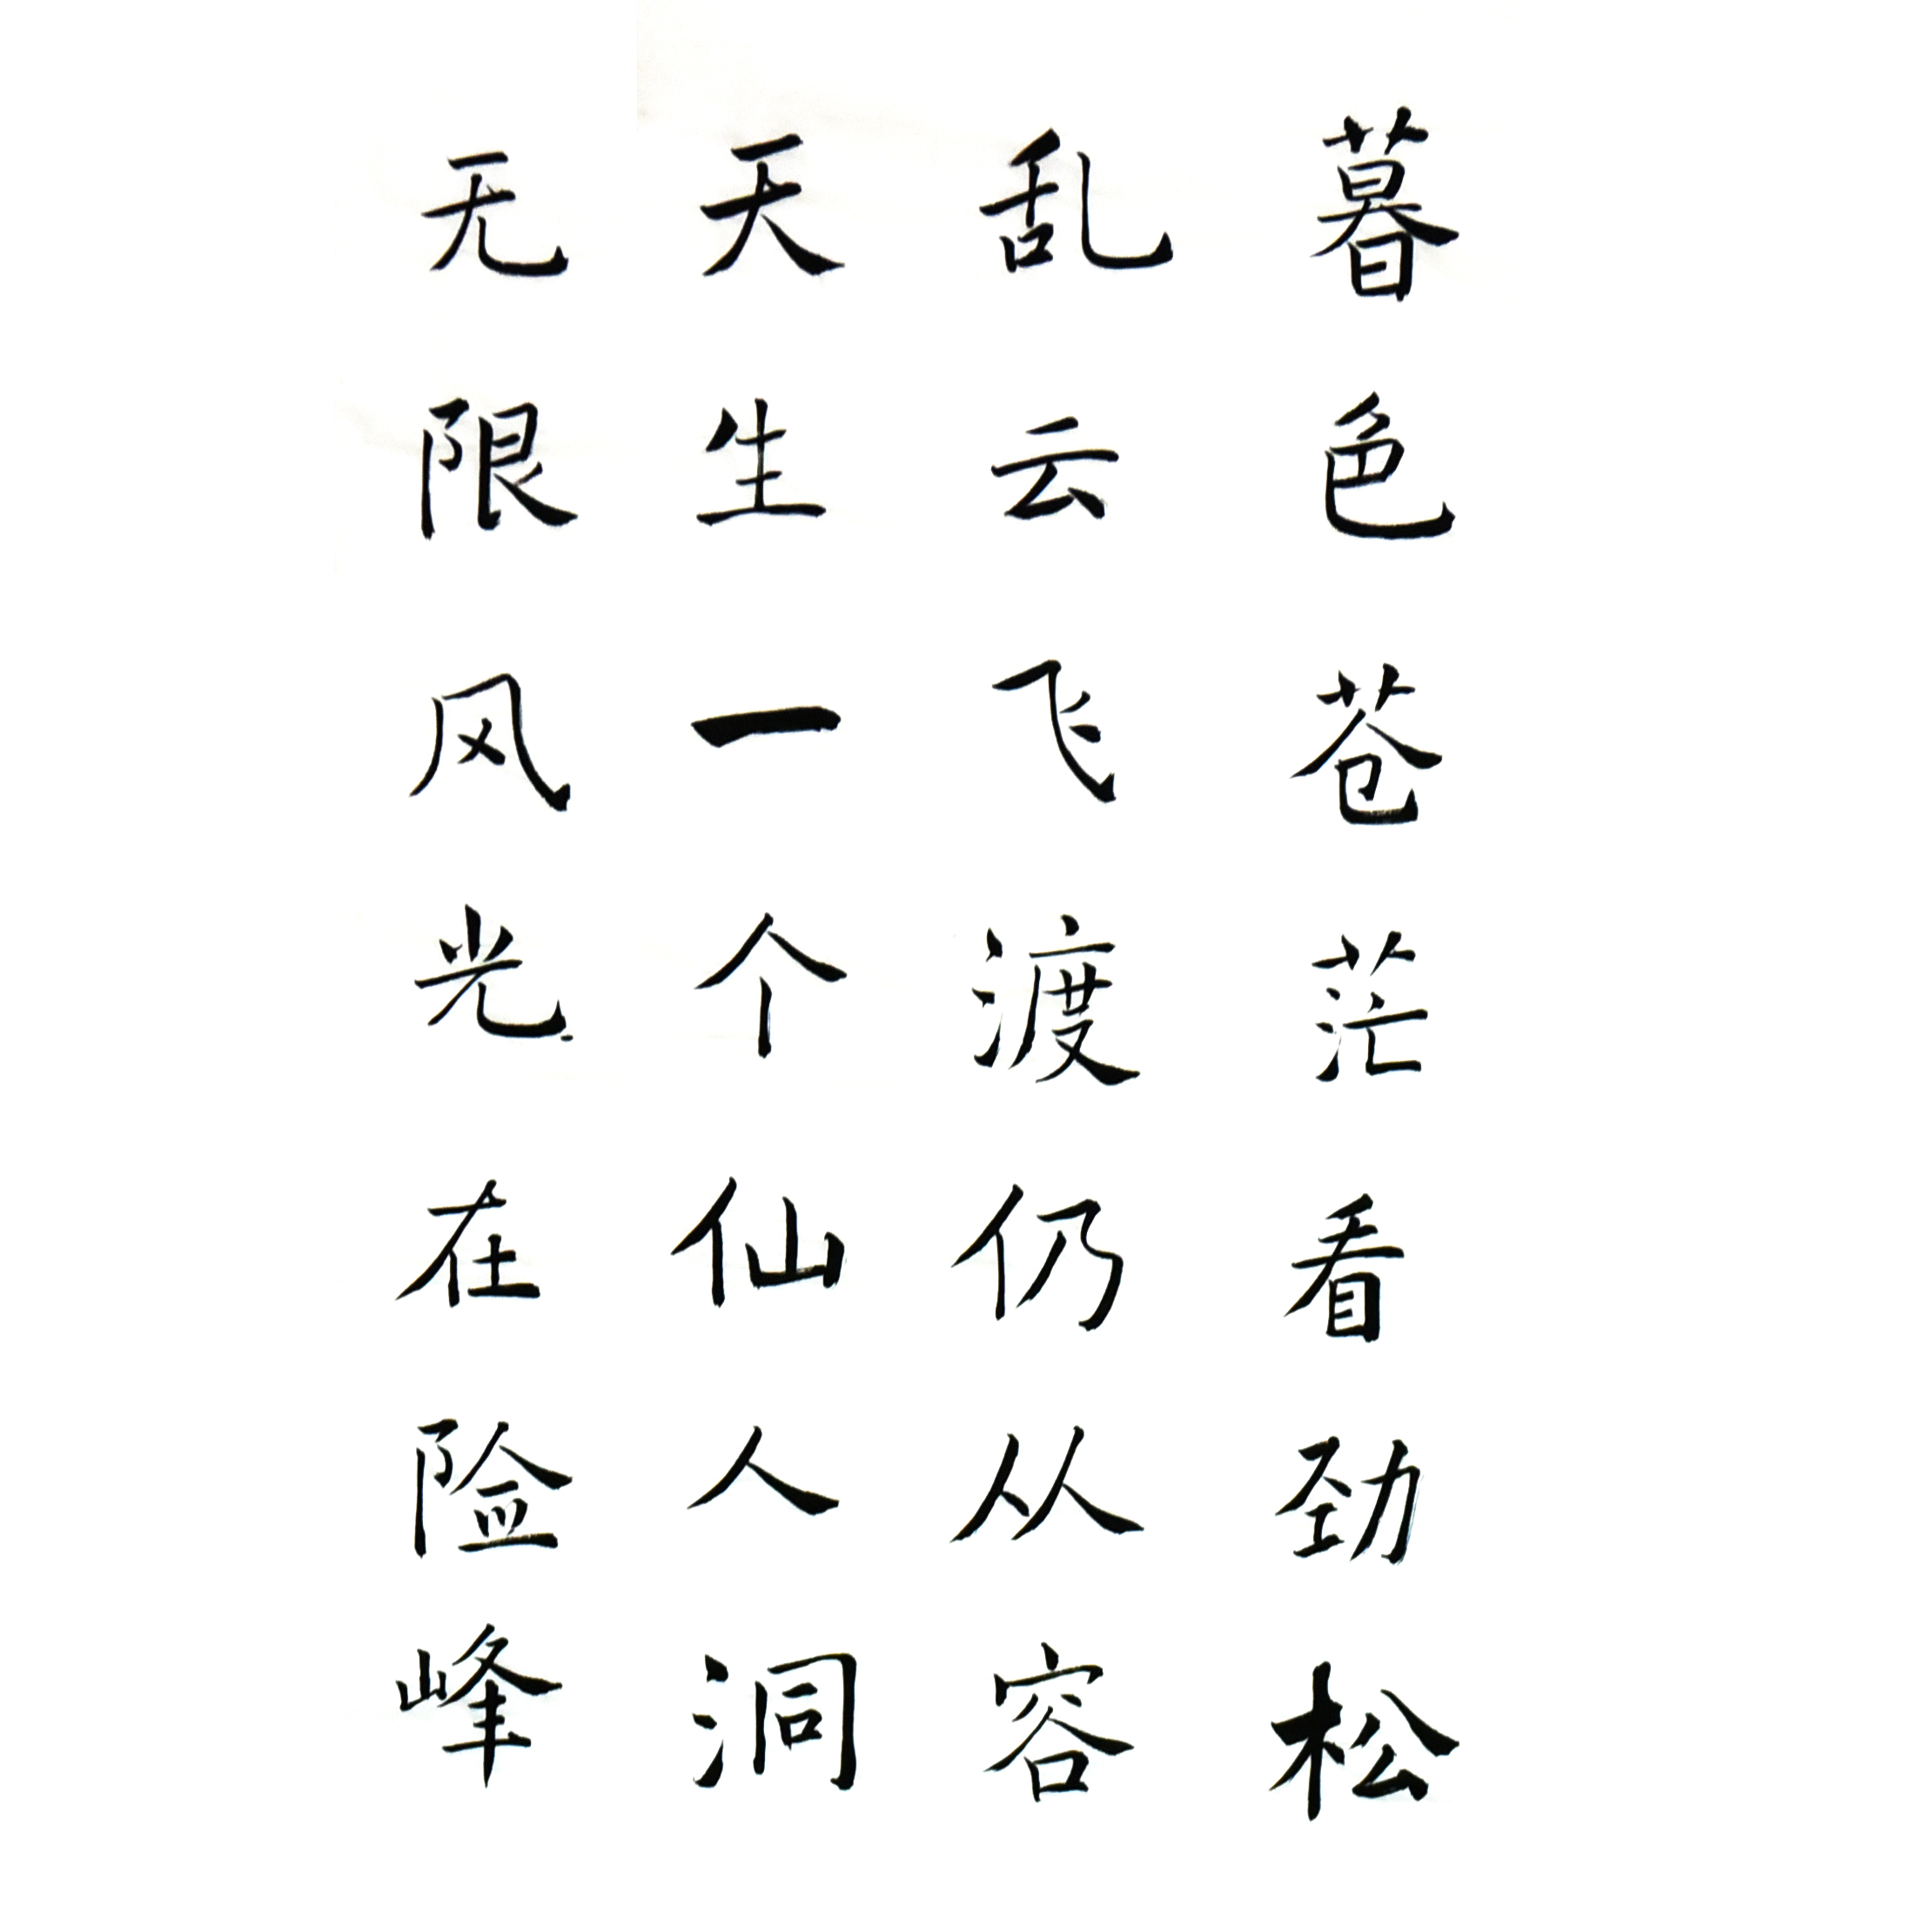 暮色苍茫看劲松
乱云飞渡仍从容
天生一个仙人洞
无限风光在险峰